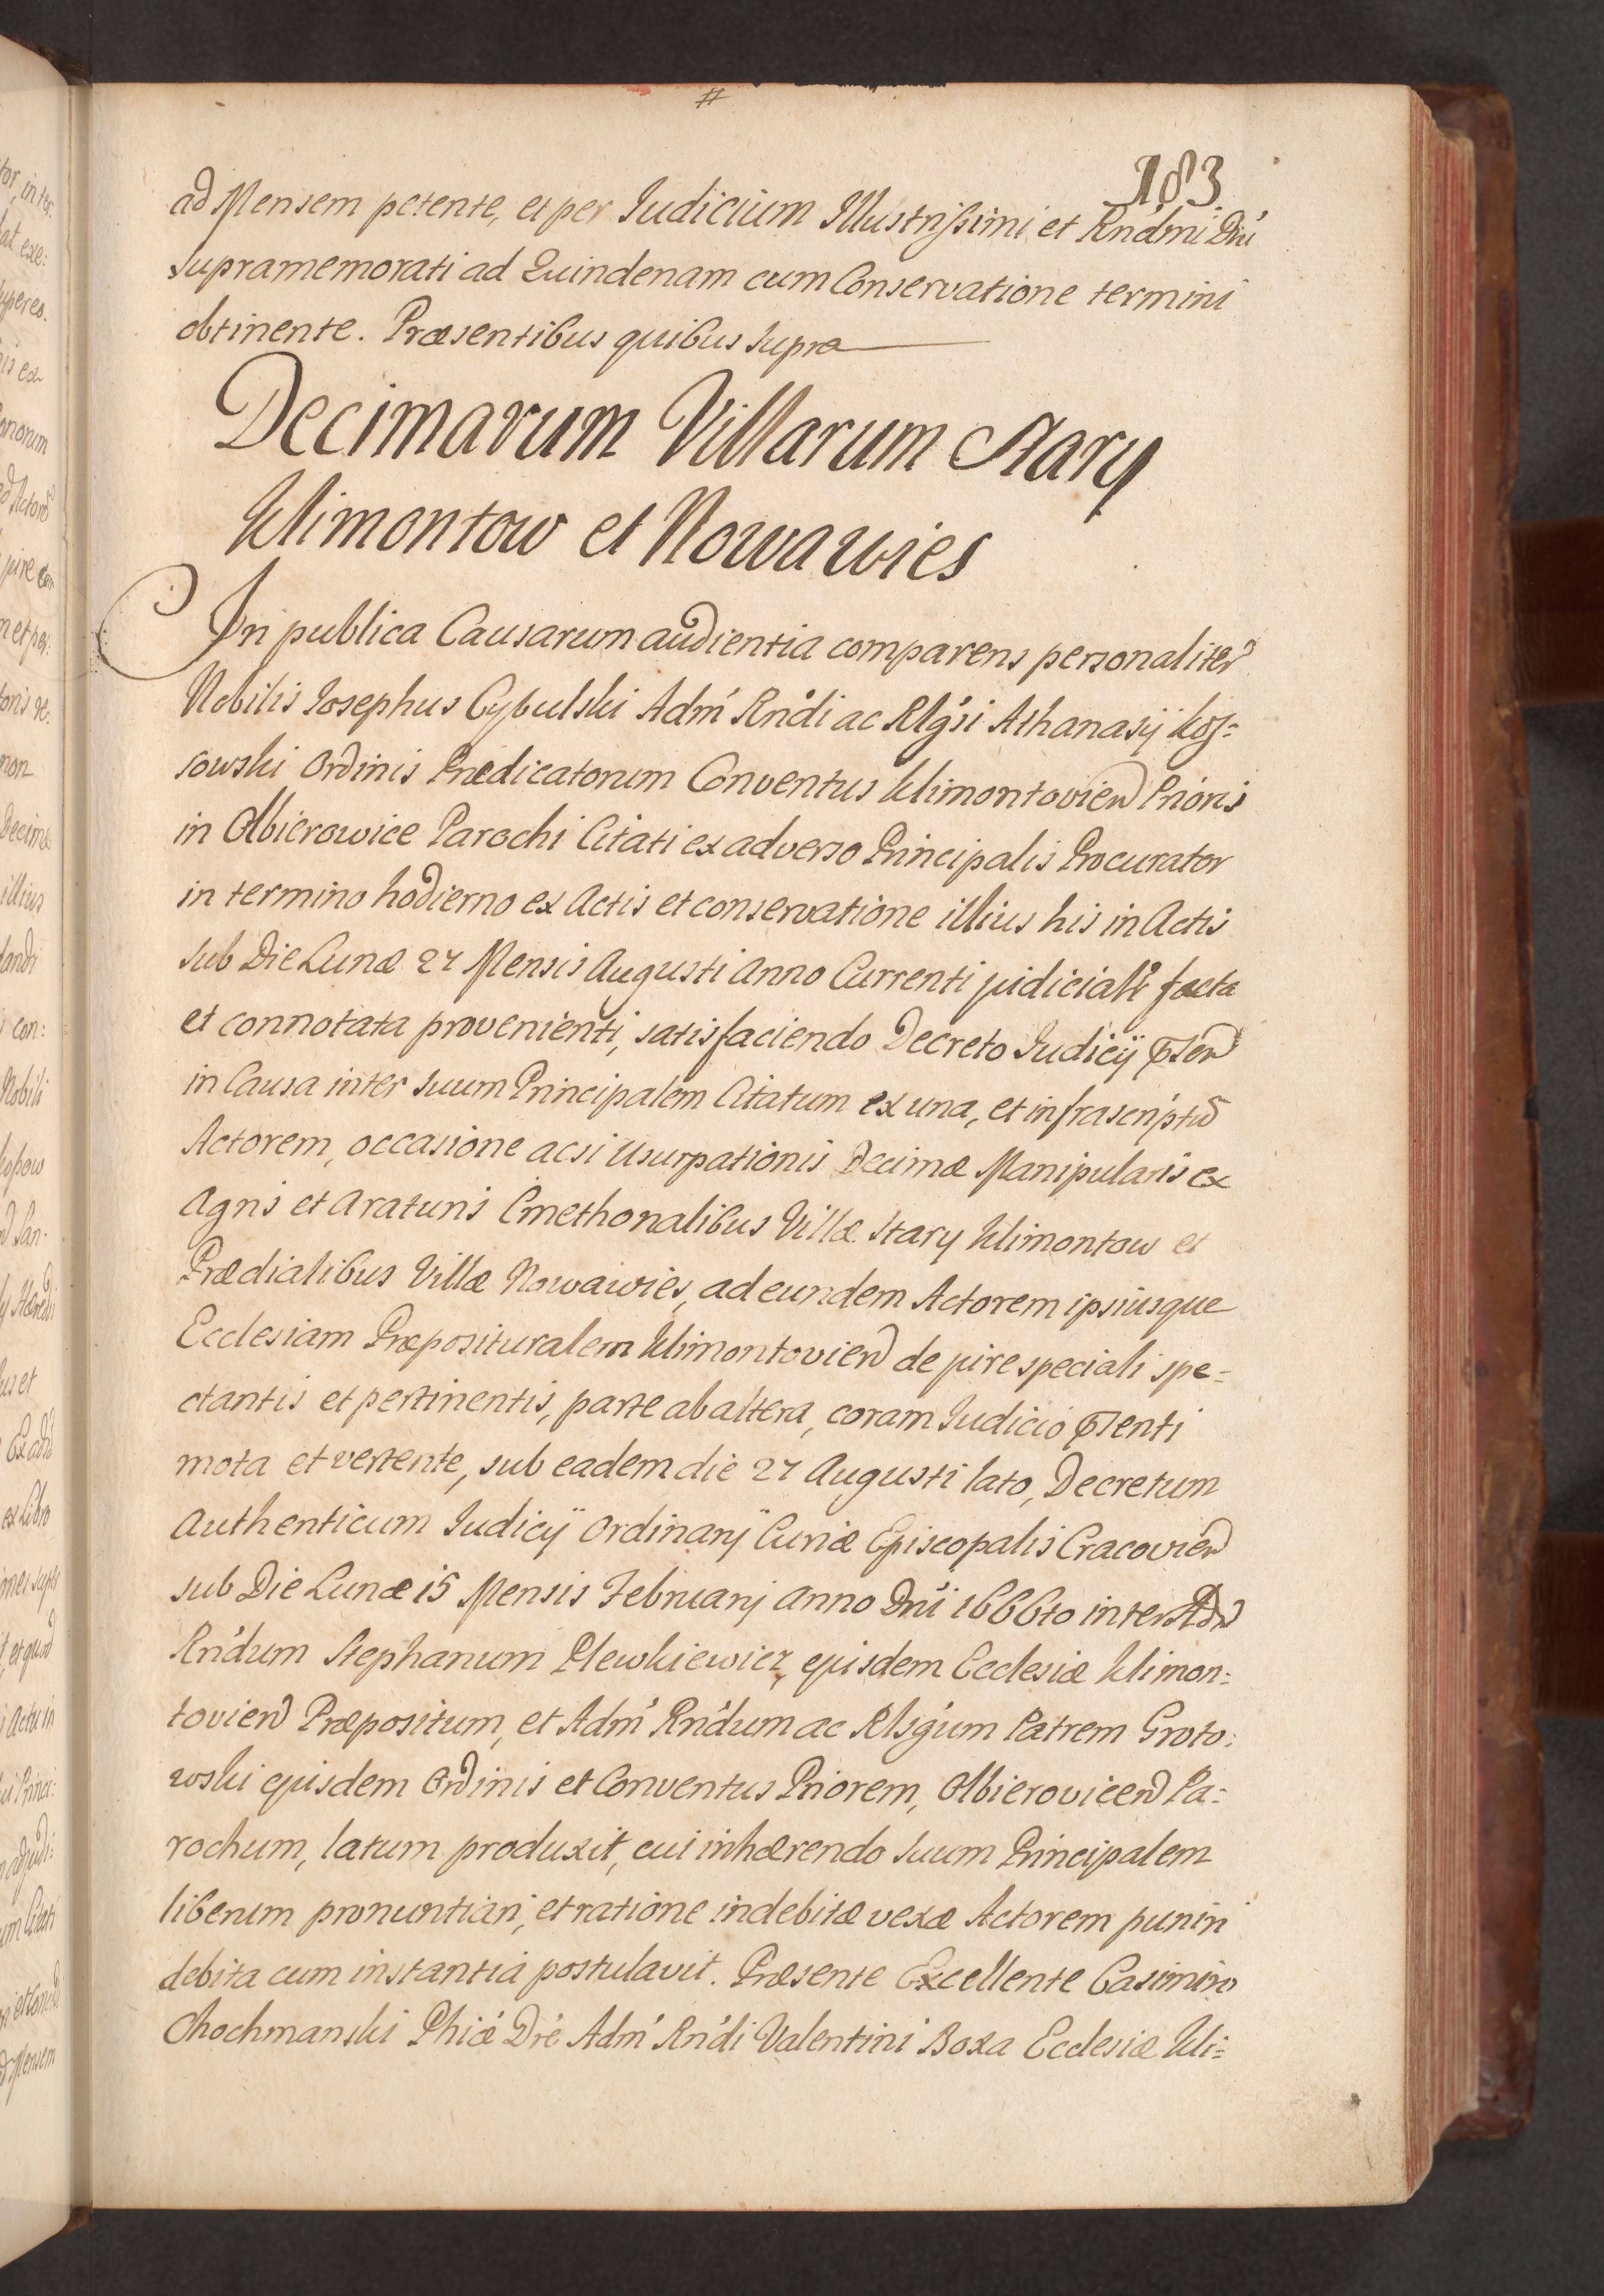 #
183
ad Mensem petente, et per Judicium Illustrissimi et Rndmi Dni
supramemorati ad Quindenam cum Conservatione termini
obtinente. Præsentibus quibus supra
Decimarum Villarum Stary
Klimontow et Nowawies
In publica Causarum audientia comparens personaliter
Nobilis Josephus Cybulski Adm Rndi ac Rlgsi Athanasij Kos=
sowski Ordinis Prædicatorum Conventus Klimontovien Prioris
in Olbierowice Parochi Citati ex adverso Principalis Procurator
in termino hodierno ex Actis et conservatione illius his in Actis
sub Die Lunæ 27 Mensis Augusti Anno Currenti judicialr facta
et connotata provenienti, satisfaciendo Decreto Judicij psen
in Causa inter suum Principalem Citatum ex una, et infrascriptu
Actorem, occasione acsi Usurpationis Decimæ Manipularis ex
Agris et Araturis Cmethonalibus Villæ Stary Klimontow et
Prædialibus Villæ Nowawies, ad eundem Actorem ipsiusque
Ecclesiam Præposituralem Klimontovien de jure speciali spe=
ctantis et pertinentis, parte ab altera, coram Judicio psenti
mota et vertente, sub eadem die 27 Augusti lato, Decretum
Authenticum Judicij Ordinarij Curiæ Episcopalis Cracovien
sub Die Lunæ 15 Mensis Februarij Anno Dni 1666to inter Adm
Rndum Stephanum Plewkiewicz, ejusdem Ecclesiæ Klimon=
tovien Præpositum, et Adm Rndum ac Rlsgum Patrem Groto=
wski ejusdem Ordinis et Conventus Priorem, Olbierovicen Pa=
rochum, latum produxit, cui inhærendo suum Principalem
liberum pronuntiari, et ratione indebitæ vexæ Actorem puniri
debita cum instantia postulavit. Præsente Excellente Casimiro
Chochmanski Phiæ Dre Adm Rndi Valentini Boxa Ecclesiæ Kli=